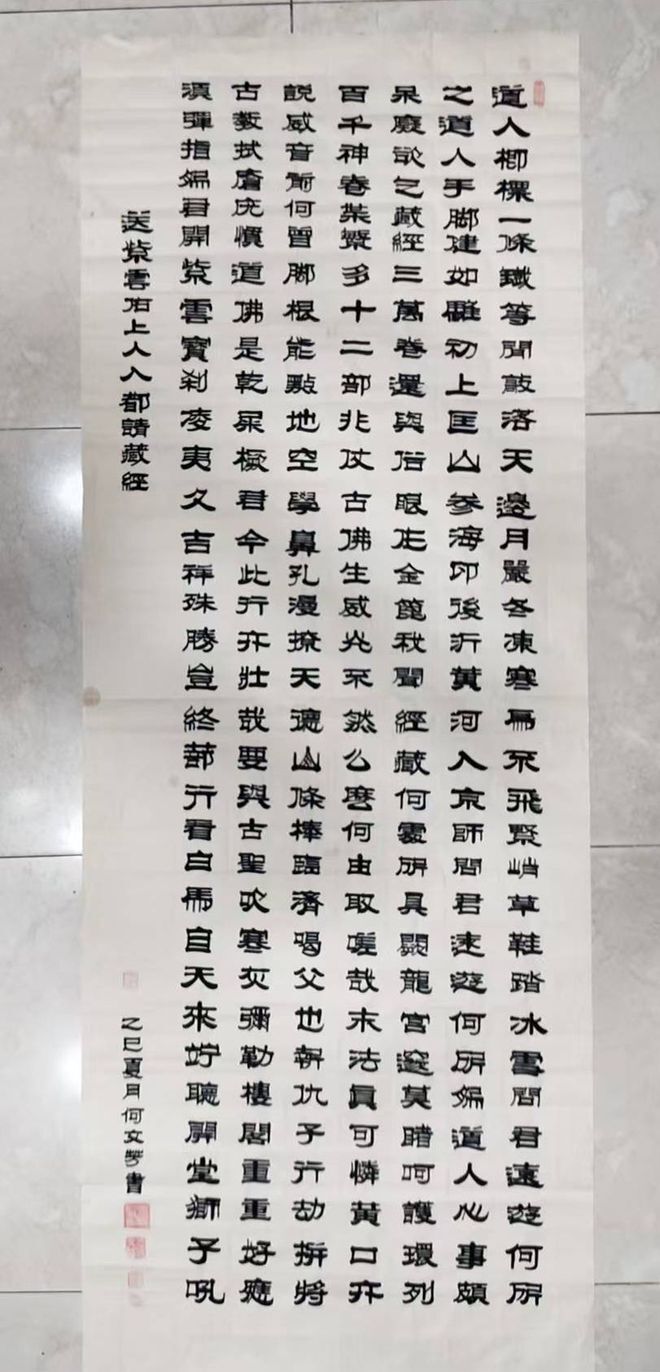 道人櫛標一條鐵等閒敲洛天邊月嚴冬凍寒扁不飛緊峭草鞋踏冰雪問君遠遊何所
之道人手腳健如驪初上匡山參海印後沂黃河入京師問君遠遊何所為道人心事頗
呆癡欲乞藏經三萬卷還與俗眼作金篦我聞經藏何處所具闕龍宮邃莫睹呵護環列
百千神卷帙繁多十二部非仗古佛生威光不然么麼何由取嗟哉末法真可憐黃口亦
說威音前何曾腳根能點地空學鼻孔漫撩天德山條棒臨濟喝父也翻仇子行劫拚將
古教拭瘡疣慣道佛是乾屎橛君今此行亦壯哉要與古聖吹寒灰彌勒樓閣重重好應
須彈指為君開紫雲寶刹凌夷久吉祥殊勝豈終鄣行看白馬自天來竚聽開堂獅子吼
送紫雲佑上人入都請藏經
乙巳夏月何文芳書